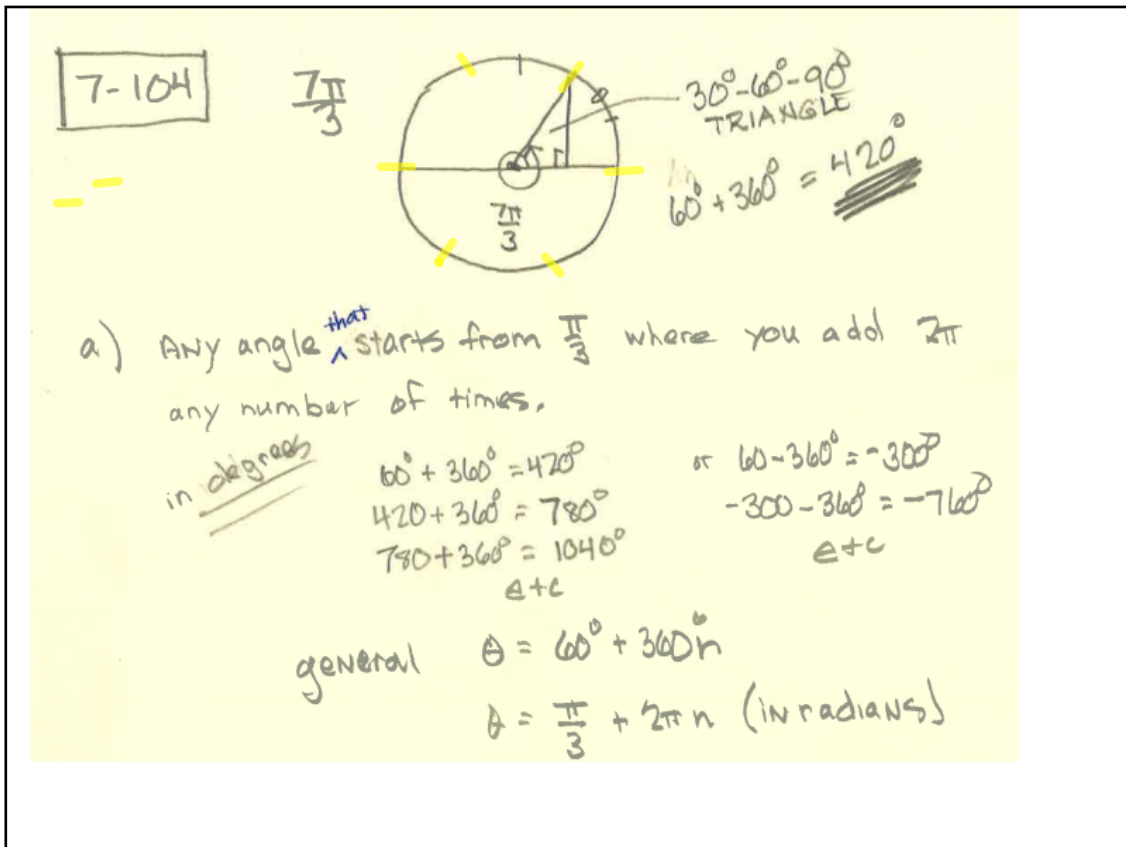 7-104
7π/3
30°-60°-90°
TRIANGLE
60° + 360° = 420°
7π/3
a) ANY angle that starts from π/3 where you add 2π
any number of times.
in degrees
60° + 360° = 420°
420 + 360° = 780°
780 + 360° = 1040°
etc
or 60 - 360° = -300°
-300 - 360° = -760°
etc
general θ = 60° + 360°n
θ = π/3 + 2πn (in radians)